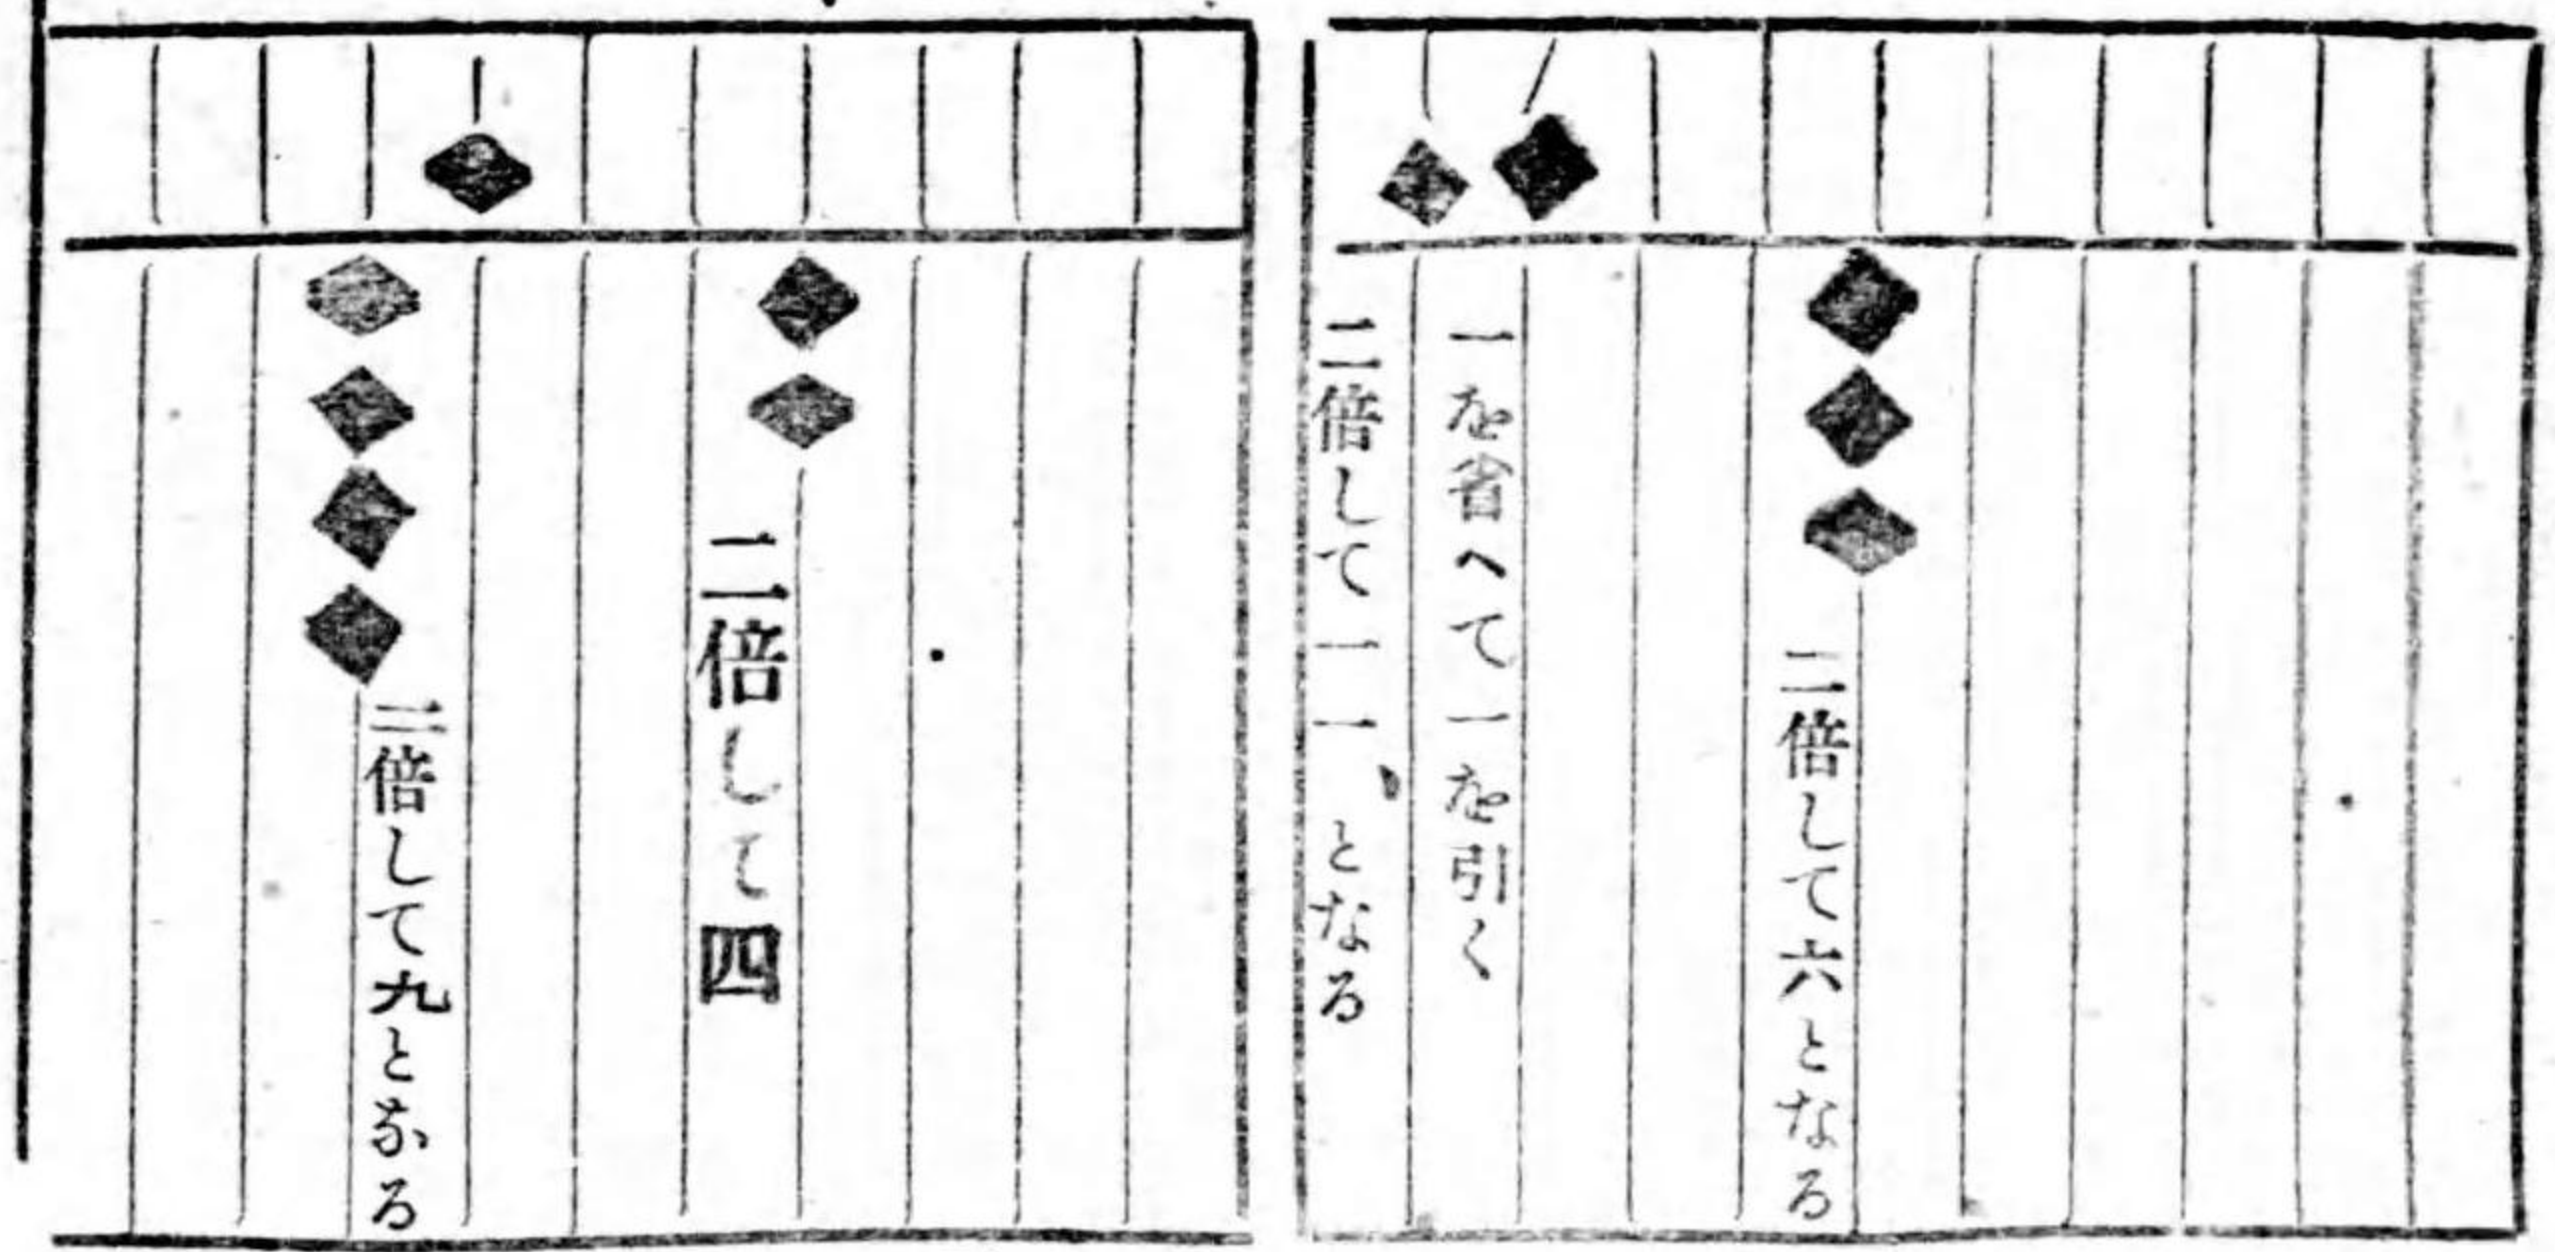 二倍して六となる
一を省へて一を引く
二倍して一一、となる
二倍して四
三倍して九となる